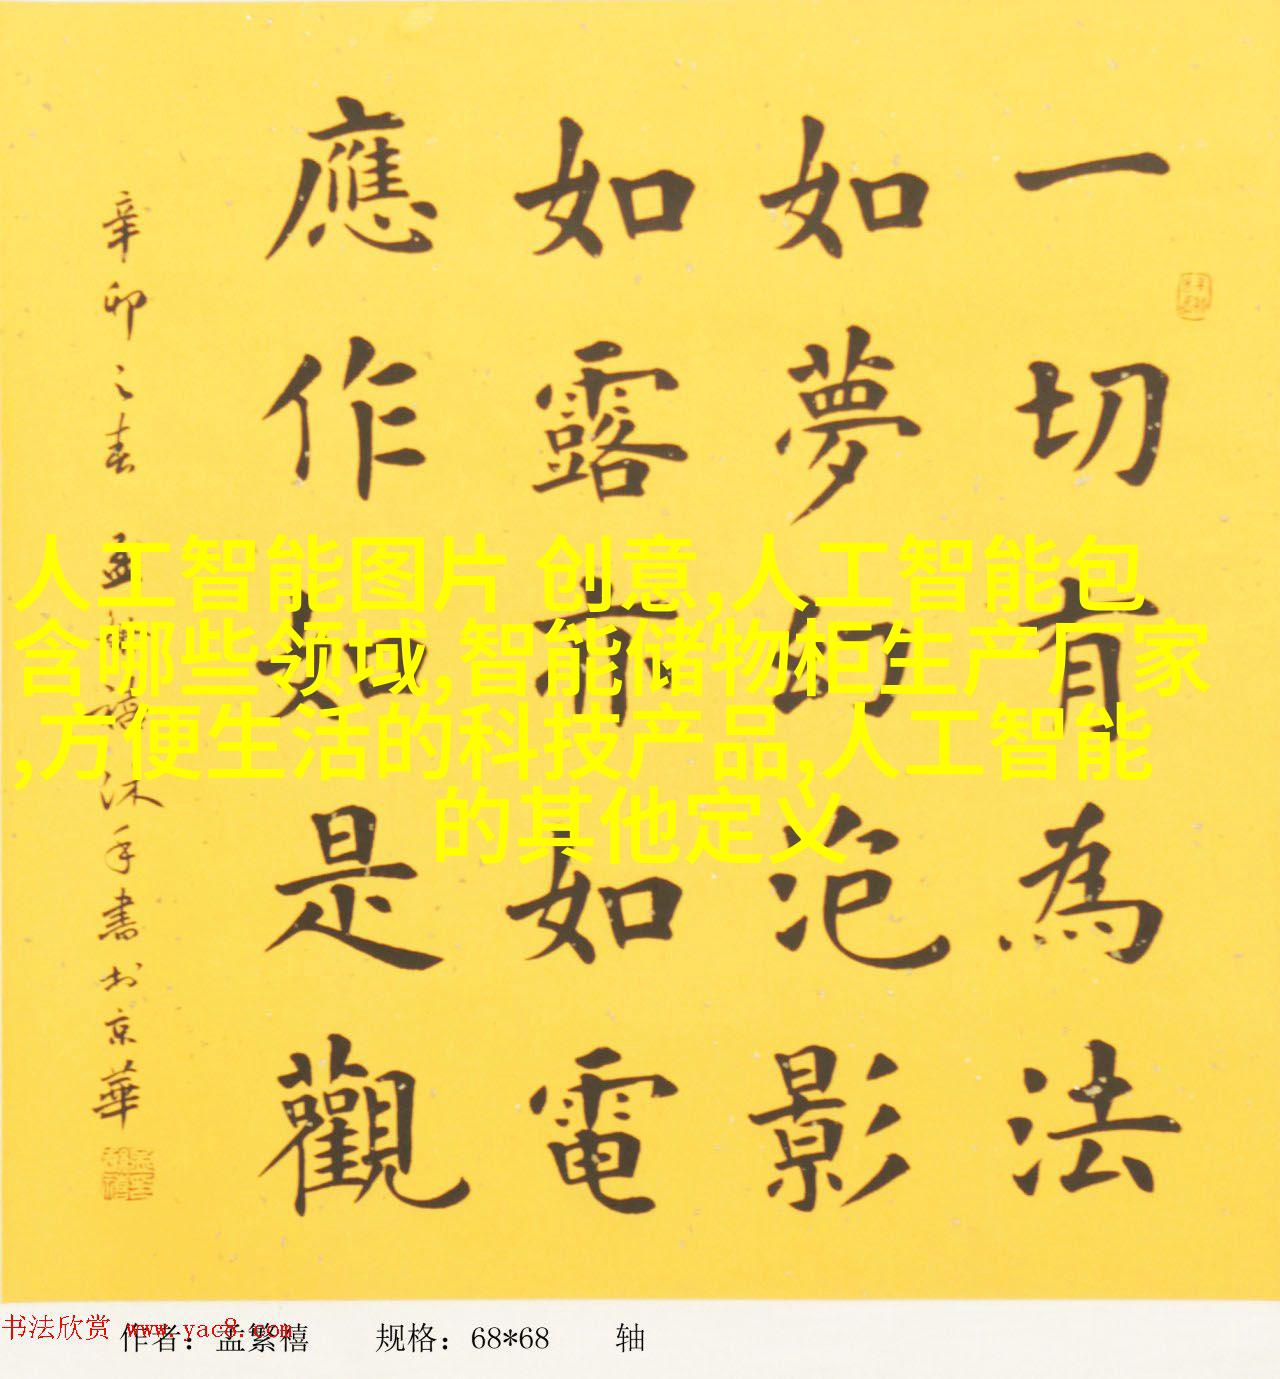 一切有為法
如夢幻泡影
如露亦如電
應作如是觀
辛卯之春 孟繁禧沐手書於京華
人工智能图片 创意,人工智能包
含哪些领域,智能储物柜生产厂家
,方便生活的科技产品,人工智能
的其他定义
书法欣赏 www.yac8.com
作者：孟繁禧 规格：68*68 轴